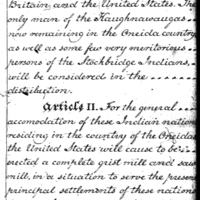 Britain and the United States. The
only man of the Kaughnawaugas
now remaining in the Oneida country
as well as some few very meritorious
persons of the Stockbridge Indians,
will be considered in the
distribution.
Article II. For the general
accomodation of these Indian nations
residing in the country of the Oneidas
the United States will cause to be
erected a complete grist mill and saw
mill, in a situation to serve the present
principal settlements of these nations